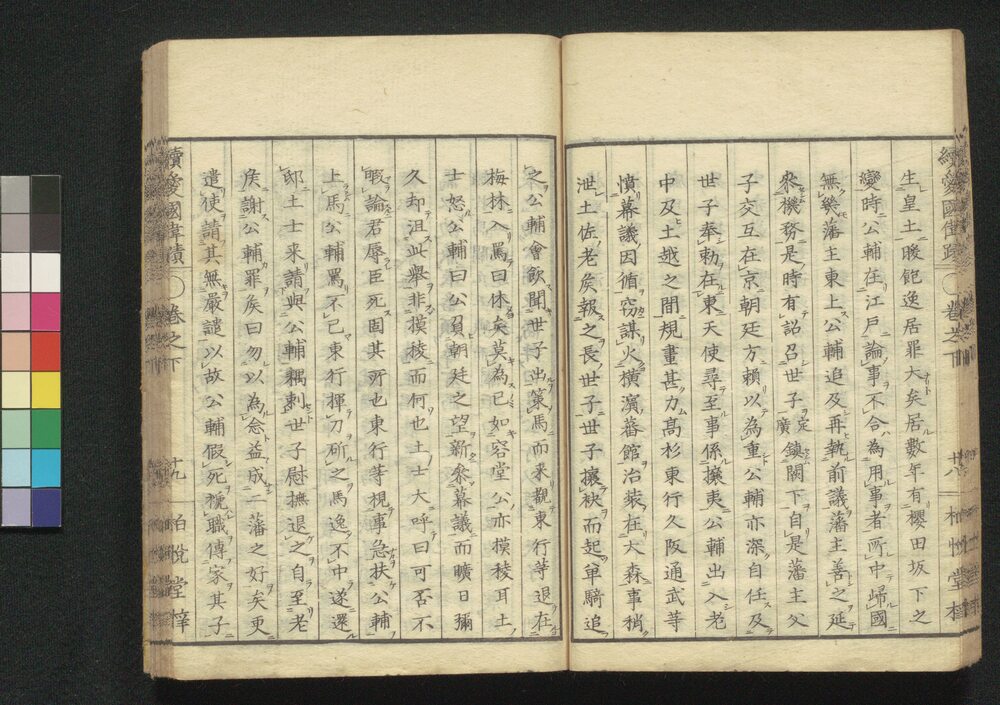 生皇土暖飽逸居罪大矣居數年有櫻田坂下之
變時公輔在江戸論事不合為用事者所中歸國
無幾藩主東上公輔追及再執前議藩主善之延
參機務是時有詔召世子定廣鎮闕下自是藩主父
子交互在京朝廷方賴以為重公輔亦深自任及
世子奉勅在東天使尋至事係攘夷公輔出入老
中及土越之間規畫甚力高杉東行久阪通武等
憤幕議因循窃謀火橫濱蕃館冶装在大森事稍
泄土佐老矦報之長世子世子攘袂而起単騎追
之公輔會飲聞世子出策馬而来觀東行等退在
梅林入罵曰休矣莫為已如容堂公亦摸稜耳土
士怒公輔曰公負朝廷之望新參幕議而曠日彌
久却沮此舉非摸稜而何也土士大呼曰可否不
暇論君辱臣死固其所也東行等視事急扶公輔
上馬公輔罵不已東行揮刀斫之馬逸不中遂還
邸土士来請與公輔耦刺世子慰撫退之自至老
矦謝公輔罪矦曰勿以為念益成二藩之好矣更
遣使請其無嚴譴以故公輔假死挩職傳家其子
續愛國偉績 卷之下 十八 柏悅堂梓
續愛國偉績 卷之下 十九 柏悅堂梓